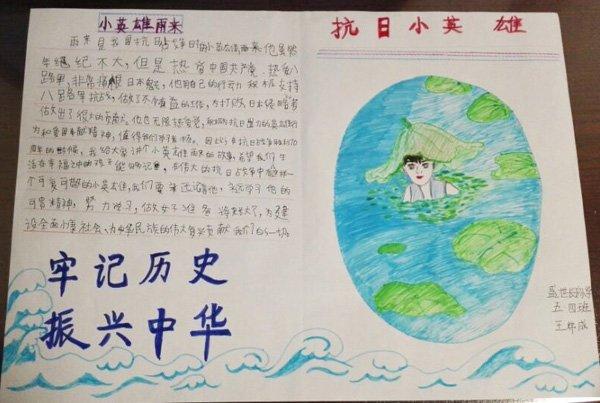 小英雄雨来
抗日小英雄
雨来是我国抗日战争时的小英雄雨来他虽然
年纪不大，但是热爱中国共产党、热爱八
路军，非常痛恨日本鬼，他用自己的行动积极支持
八路军抗战，做了不少有益的工作，为打败日本侵略者
做出了很大的贡献。他
行为和爱国奉献精神，值得我们
周年的时候，我给大家讲个小英雄雨来的故事，希望我们生
活在幸福之中的孩子能够记
一个可爱可敬的小英雄，我们要
可贵精神，努力学习，做好准备，将来长大了，为建
设全面小康社会、为中华民族的伟大复兴贡献我们的一切
牢记历史
振兴中华
五四班